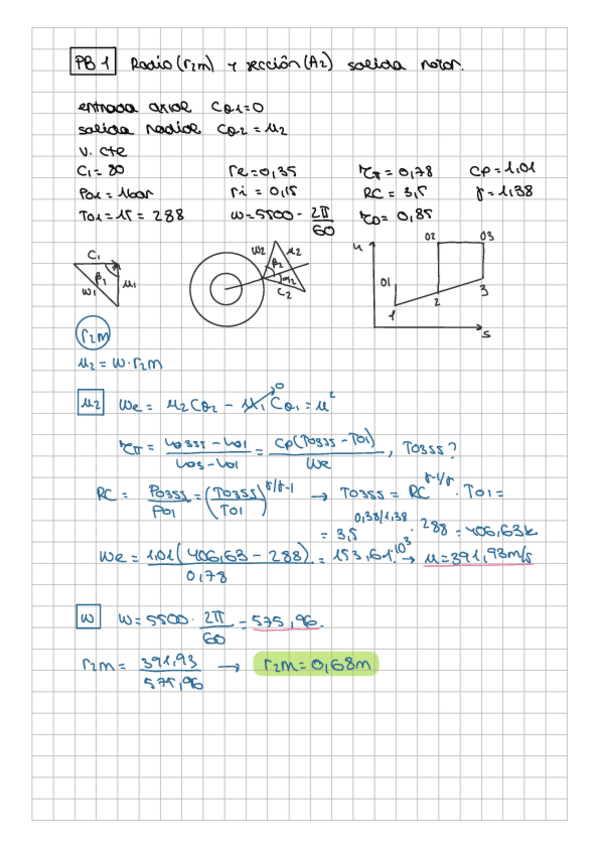 PB 1 Radio (r2m) y sección (A2) salida rotor.
entrada axial Cθ1=0
salida radial Cθ2 = u2
v. cte
C1 = 80 re = 0,35 ηTT = 0,78 Cp = 1,01
P01 = 1bar ri = 0,15 RC = 3,5 γ = 1,38
T01 = 15 = 288 ω = 5500 · 2π/60 ηD = 0,85
C1 β1 w1 u1
w2 u2 β2 α2 C2
h 01 1 02 2 03 3 s
r2m
u2 = ω · r2m
u2 We = u2 Cθ2 − u1 Cθ1 = u² 0
ηTT = h03ss − h01 / h03 − h01 = Cp (T03ss − T01) / We , T03ss ?
RC = P03ss / P01 = (T03ss / T01)^γ/γ-1 → T03ss = RC^γ-1/γ · T01 =
= 3,5^0,38/1,38 · 288 = 406,63k
We = 1,01 (406,63 − 288) / 0,78 = 153,61·10³ → u = 391,93 m/s
ω ω = 5500 · 2π/60 = 575,96.
r2m = 391,93 / 575,96 → r2m = 0,68m